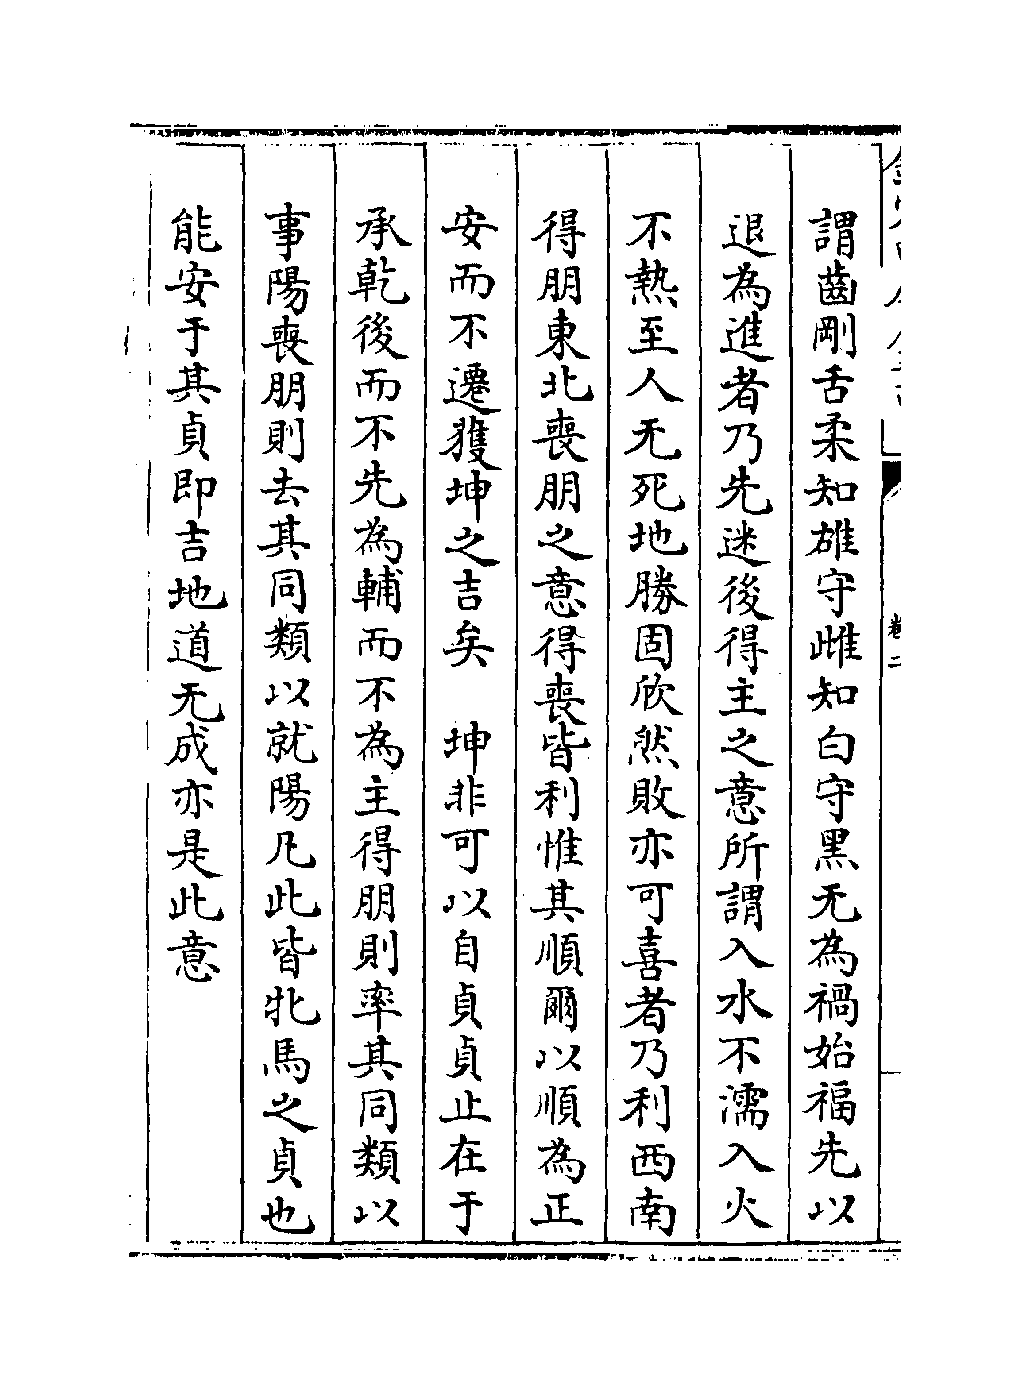 謂齒剛舌柔知雄守雌知白守黑无為禍始福先以
退為進者乃先迷後得主之意所謂入水不濡入火
不熱至人无死地勝固欣然敗亦可喜者乃利西南
得朋東北喪朋之意得喪皆利惟其順爾以順為正
安而不遷獲坤之吉矣　坤非可以自貞貞止在于
承乾後而不先為輔而不為主得朋則率其同類以
事陽喪朋則去其同類以就陽凡此皆牝馬之貞也
能安于其貞即吉地道无成亦是此意
卷二